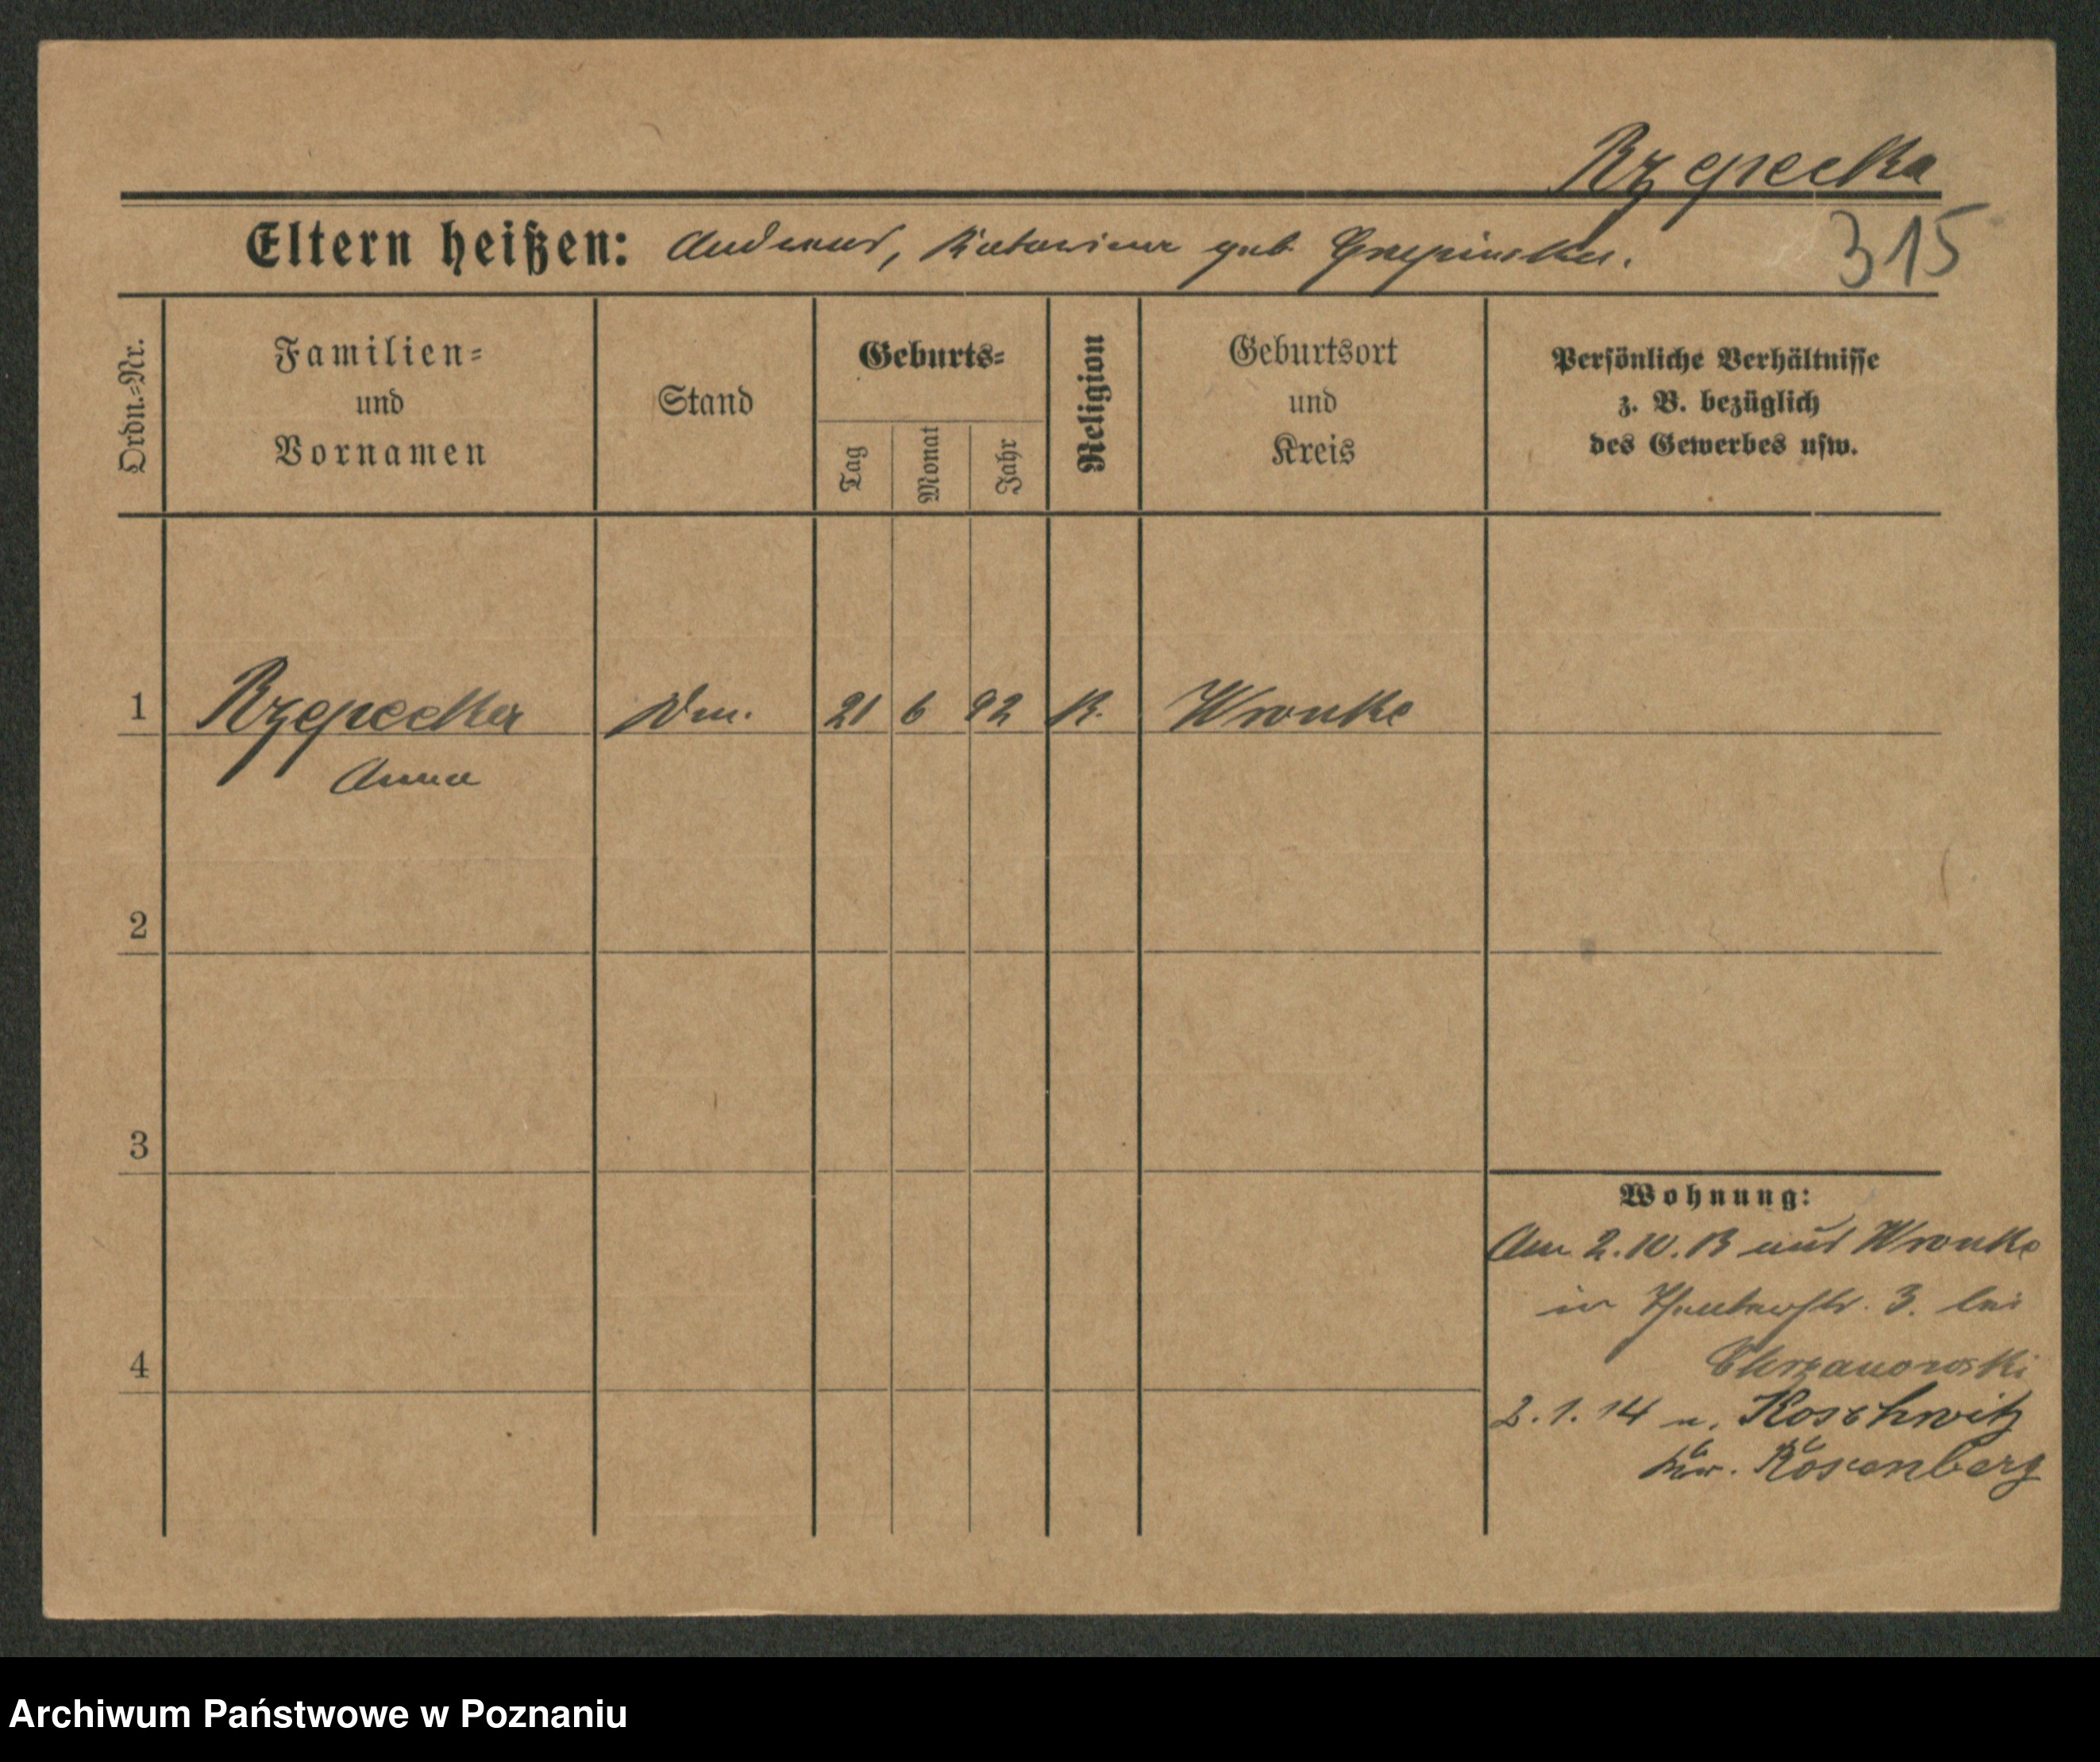 Rzepecka
315
Eltern heißen: Andreas, Katarina geb.
Ordn.=Nr.
Familien=
und
Vornamen
Stand
Geburts=
Tag
Monat
Jahr
Religion
Geburtsort
und
Kreis
Persönliche Verhältnisse
z. B. bezüglich
des Gewerbes usw.
1 Rzepecka 21 6 92 K. Wronke
Anna
2
3
4
Wohnung:
Am 2.10.13 aus Wronke
in 3. bei
Chrzanowski
2.1.14 n. Koschwitz
Rosenberg
Archiwum Państwowe w Poznaniu